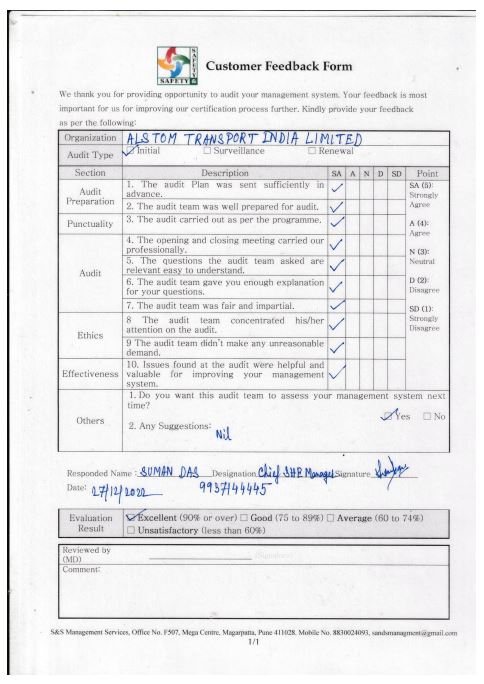 SAFETY
SAFETY
Customer Feedback Form
We thank you for providing opportunity to audit your management system. Your feedback is most
important for us for improving our certification process further. Kindly provide your feedback
as per the following:
Organization ALSTOM TRANSPORT INDIA LIMITED
Audit Type ☑ Initial ☐ Surveillance ☐ Renewal
Section Description SA A N D SD Point
Audit Preparation
1. The audit Plan was sent sufficiently in
advance.
2. The audit team was well prepared for audit.
Punctuality 3. The audit carried out as per the programme.
Audit
4. The opening and closing meeting carried our
professionally.
5. The questions the audit team asked are
relevant easy to understand.
6. The audit team gave you enough explanation
for your questions.
7. The audit team was fair and impartial.
Ethics
8 The audit team concentrated his/her
attention on the audit.
9 The audit team didn't make any unreasonable
demand.
Effectiveness
10. Issues found at the audit were helpful and
valuable for improving your management
system.
SA (5):
Strongly
Agree
A (4):
Agree
N (3):
Neutral
D (2):
Disagree
SD (1):
Strongly
Disagree
Others
1. Do you want this audit team to assess your management system next
time?
☑ Yes ☐ No
2. Any Suggestions:
Nil
Responded Name : SUMAN DAS Designation Chief SHE Manager Signature
Date: 27/12/2022 9937144445
Evaluation Result
☑ Excellent (90% or over) ☐ Good (75 to 89%) ☐ Average (60 to 74%)
☐ Unsatisfactory (less than 60%)
Reviewed by
(MD) (Signature)
Comment:
S&S Management Services, Office No. F507, Mega Centre, Magarpatta, Pune 411028, Mobile No. 8830024093, sandsmanagment@gmail.com
1/1